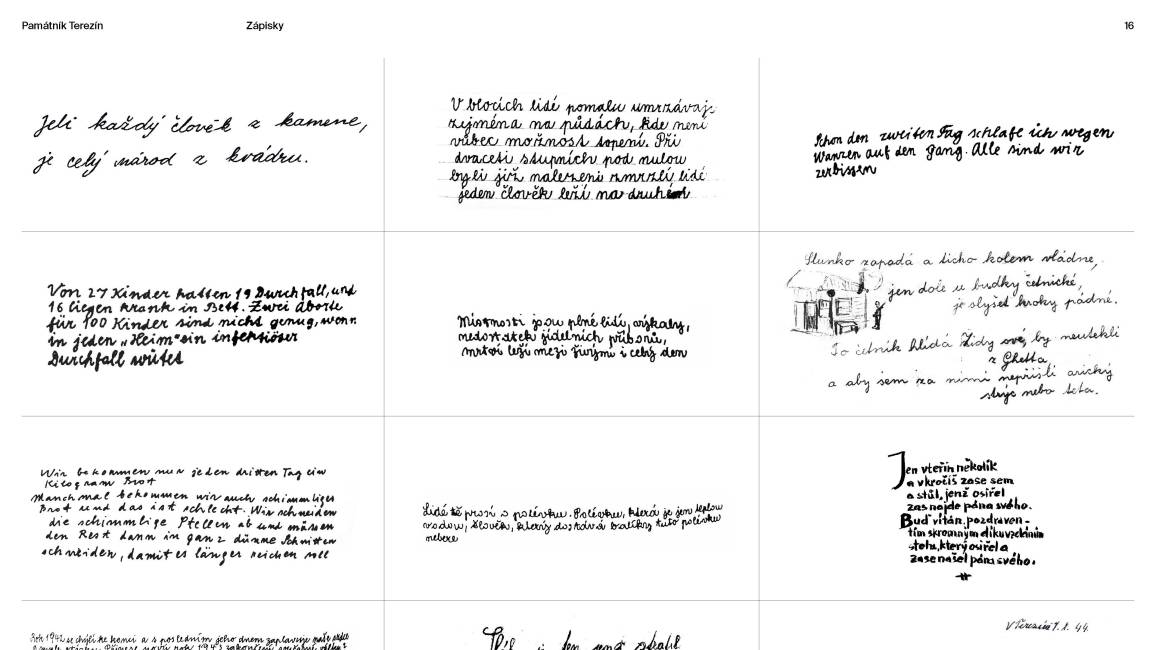 Památník Terezín
Zápisky
16
Jeli každý člověk z kamene,
je celý národ z kvádru.
V blocích lidé pomalu umrzávají
zejména na půdách, kde není
vůbec možnost topení. Při
dvaceti stupních pod nulou
byli již nalezeni zmrzlí lidé
jeden člověk leží na druhém
Schon den zweiten Tag schlafe ich wegen
Wanzen auf den Gang. Alle sind wir
zerbissen
Von 27 Kinder hatten 19 Durchfall, und
16 liegen krank in Bett. Zwei Aborte
für 100 Kinder sind nicht genug, wenn
in jeden „Heim" ein infektiöser
Durchfall wütet
Místnosti jsou plné lidí, výkaly,
nedostatek jídelních příborů,
mrtví leží mezi živými i celý den
Slunko zapadá a ticho kolem vládne,
jen dole u budky četnické,
je slyšet kroky pádné.
To četník hlídá Židy své, by neutekli
z Ghetta
a aby sem za nimi nepřišli arický
strýc nebo teta.
Wir bekommen nur jeden dritten Tag ein
Kilogram Brot
Manchmal bekommen wir auch schimmliges
Brot und das ist schlecht. Wir schneiden
die schimmlige Stellen ab und müssen
den Rest dann in ganz dünne Schnitten
schneiden, damit es länger reichen soll
Lidé tě prosí o polévku. Polévku, která je jen teplou
vodou, člověk, který dostává balíčky tuto polévku
nebere
Jen vteřin několik
a vkročíš zase sem
a stůl, jenž osiřel
zas najde pána svého.
Buď vítán, pozdraven-
tím skromným díkůvzdáním
stolu, který osiřel a
zase našel pána svého.
Rok 1942 se chýlí ke konci a s posledním jeho dnem zaplavuje naše srdce
V Terezíně 1. 1. 44.